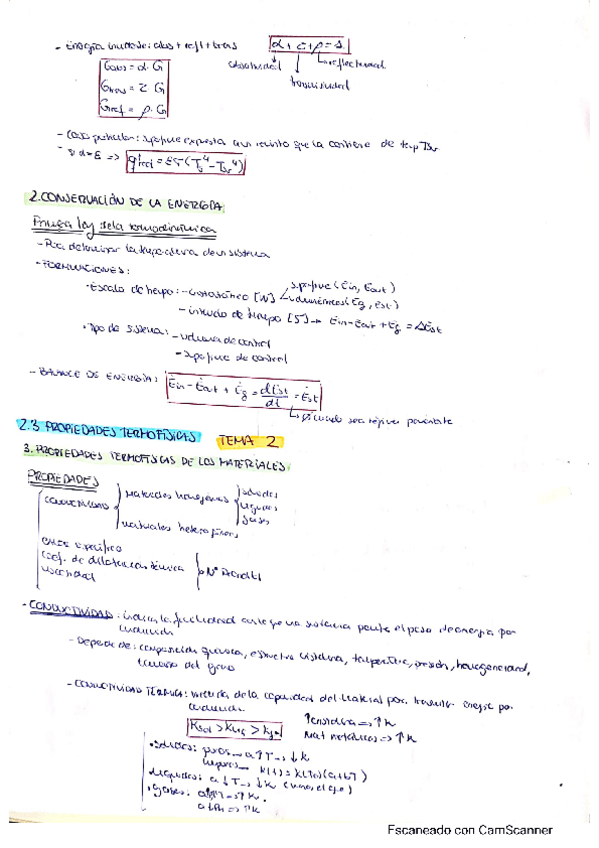 - Energía incidente: abs + refl + trans   α + τ + ρ = 1
absortividad   reflectividad
transmisividad
Gabs = α · G
Gtrans = τ · G
Gref = ρ · G
- Caso particular: superficie expuesta a un recinto que la contiene de temp Tsur
α = ε => q"rad = εσ(Ts⁴ - Tsur⁴)
2. CONSERVACIÓN DE LA ENERGÍA
Primera ley de la termodinámica
- Para determinar la temperatura de un sistema
- FORMULACIONES:
- Escala de tiempo: - instantáneo [W] superficie (Ein, Eout)
volumétricos (Eg, Est)
- intervalo de tiempo [J] → Ein - Eout + Eg = ΔEst
- Tipo de sistema: - volumen de control
- Superficie de control
- BALANCE DE ENERGÍA: Ėin - Ėout + Ėg = dEst/dt = Ėst
cuando sea régimen permanente
2.3 PROPIEDADES TERMOFÍSICAS   TEMA 2
3. PROPIEDADES TERMOFÍSICAS DE LOS MATERIALES
PROPIEDADES
conductividad   Materiales homogéneos   sólidos
líquidos
gases
materiales heterogéneos
calor específico
coef. de dilatación térmica
viscosidad   Nº Prandtl
- CONDUCTIVIDAD: indica la facilidad con la que una sustancia permite el paso de energía por
conducción
- Depende de: composición química, estructura cristalina, temperatura, presión, homogeneidad,
tamaño del grano
- CONDUCTIVIDAD TÉRMICA: medida de la capacidad del material para transmitir energía por
conducción
Ksol > Kliq > Kgas   ↑ => ↑K
Mat metálicos => ↑K
· Sólidos: puros → a ↑T → ↓K
impuros → K(T) = K(T0)(a+bT)
· líquidos: a ↓T → ↓K
· gases: a ↑T → ↑K.
=> ↑K
Escaneado con CamScanner